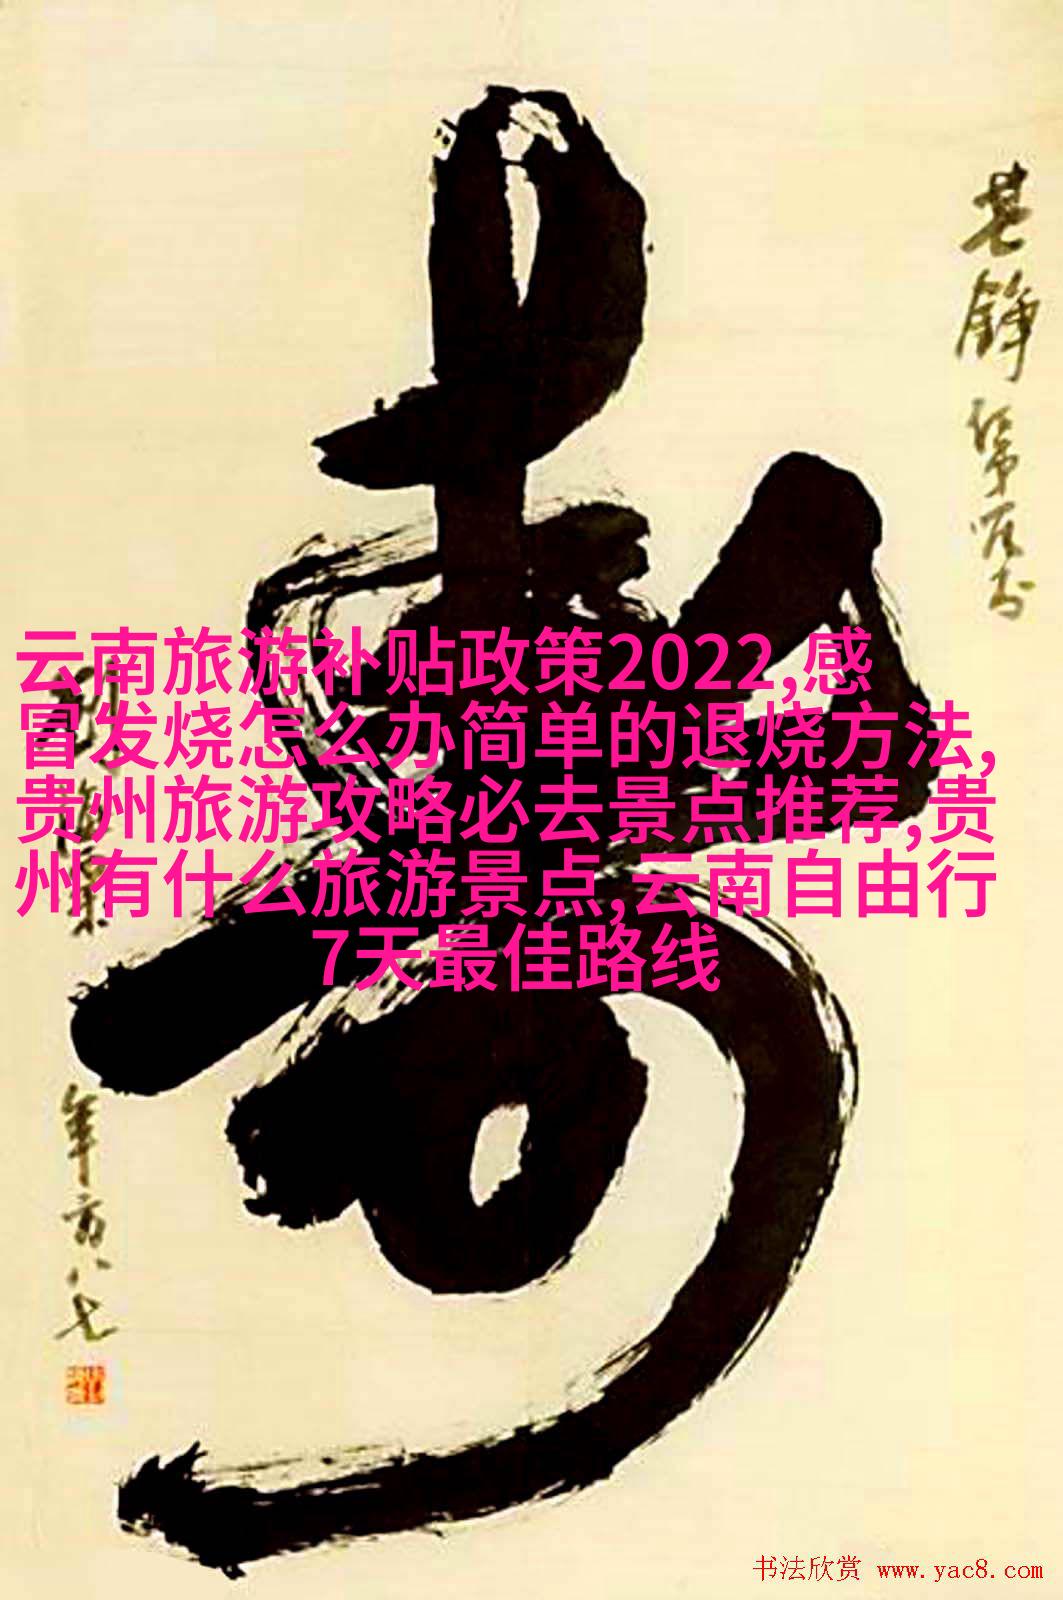 云南旅游补贴政策2022,感
冒发烧怎么办简单的退烧方法,
贵州旅游攻略必去景点推荐,贵
州有什么旅游景点,云南自由行
7天最佳路线
寿
年方八七
书法欣赏 www.yac8.com